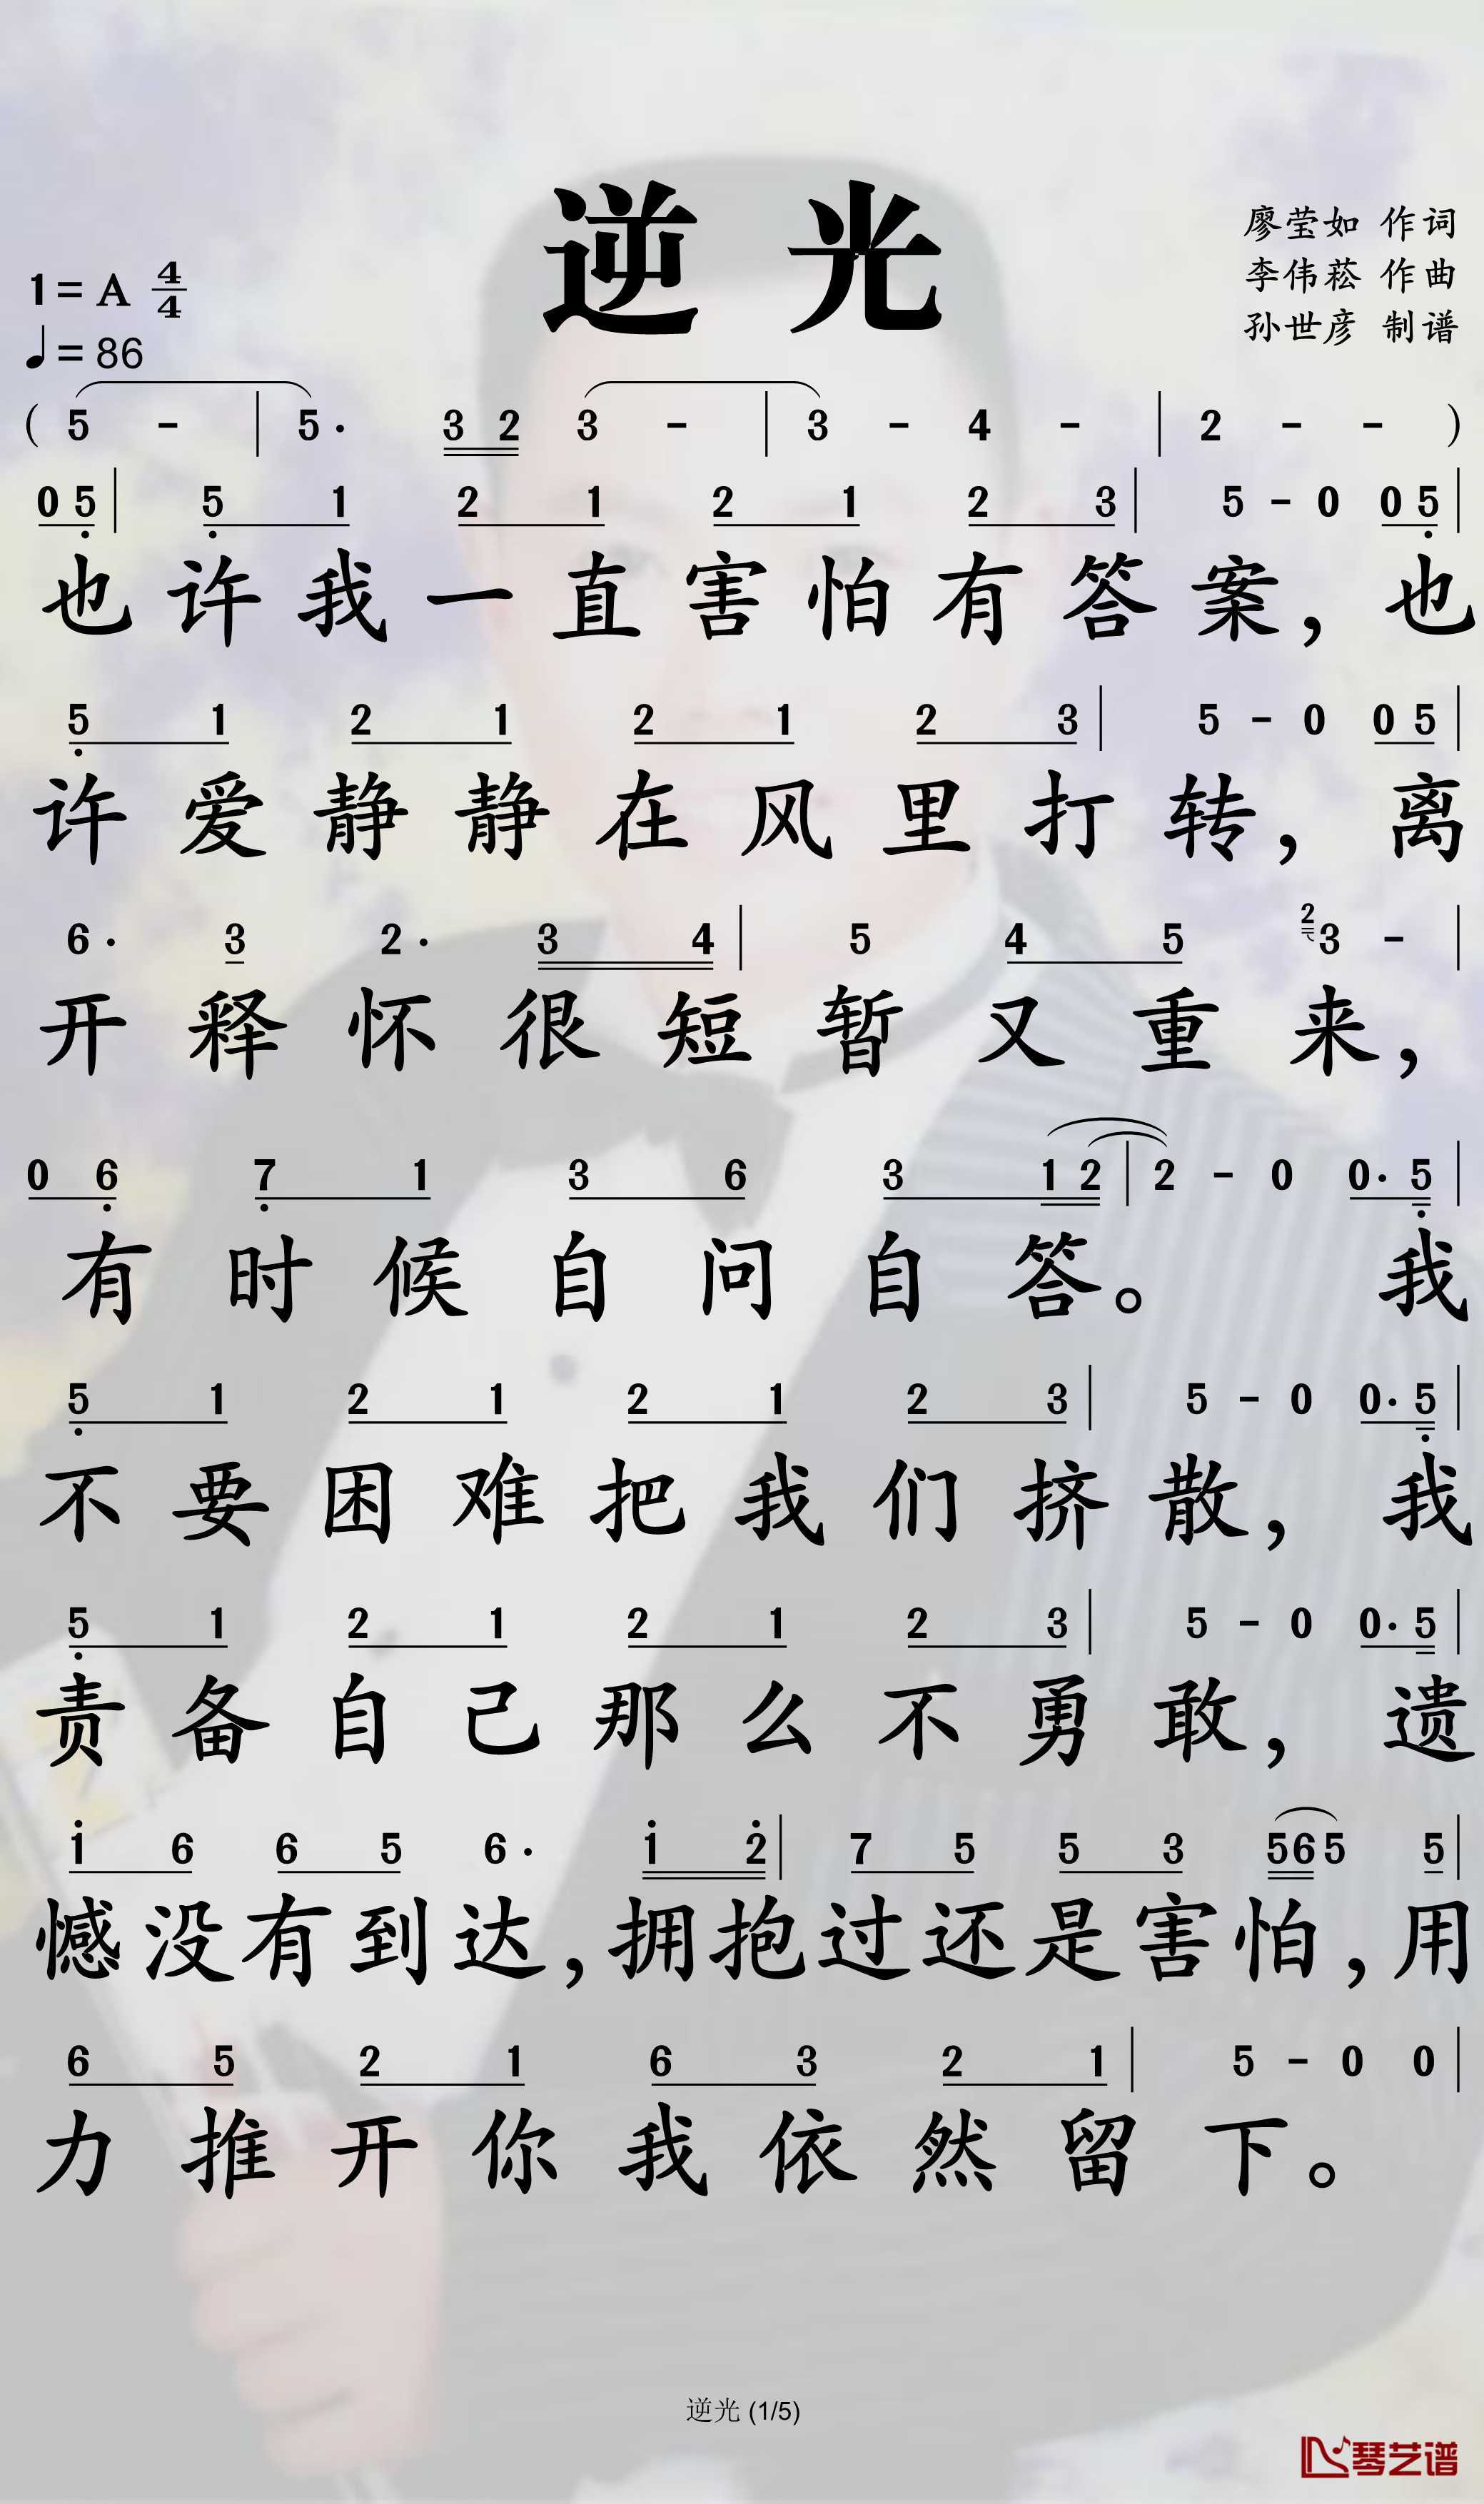 逆光
廖莹如 作词
李伟菘 作曲
孙世彦 制谱
1=A 4/4
♩=86
( 5 - | 5· 3 2 3 - | 3 - 4 - | 2 - - )
0 5 | 5 1 2 1 2 1 2 3 | 5 - 0 0 5 |
也许我一直害怕有答案，也
5 1 2 1 2 1 2 3 | 5 - 0 0 5 |
许爱静静在风里打转，离
6· 3 2· 3 4 | 5 4 5 2 3 - |
开释怀很短暂又重来，
0 6 7 1 3 6 3 1 2 | 2 - 0 0· 5 |
有时候自问自答。 我
5 1 2 1 2 1 2 3 | 5 - 0 0· 5 |
不要困难把我们挤散，我
5 1 2 1 2 1 2 3 | 5 - 0 0· 5 |
责备自己那么不勇敢，遗
1 6 6 5 6· 1 2 | 7 5 5 3 5 6 5 5 |
憾没有到达，拥抱过还是害怕，用
6 5 2 1 6 3 2 1 | 5 - 0 0 |
力推开你我依然留下。
逆光 (1/5)
琴艺谱